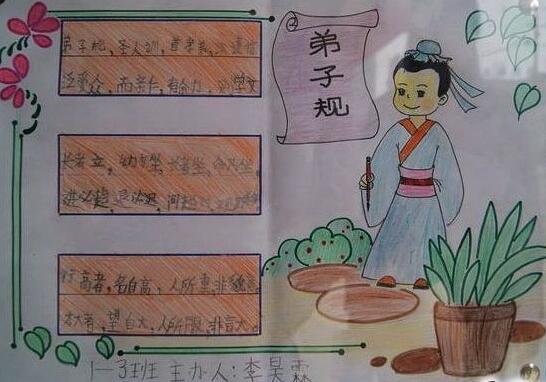 弟子规
弟子规，圣人训，首孝弟，次谨信
泛爱众，而亲仁，有余力，则学文
长者立，幼勿坐，长者坐，命乃坐，
进必趋，退必迟，问起对，视勿移
行高者，名自高，人所重，非貌高，
才大者，望自大，人所服，非言大。
1—3班 主办人：李昊霖